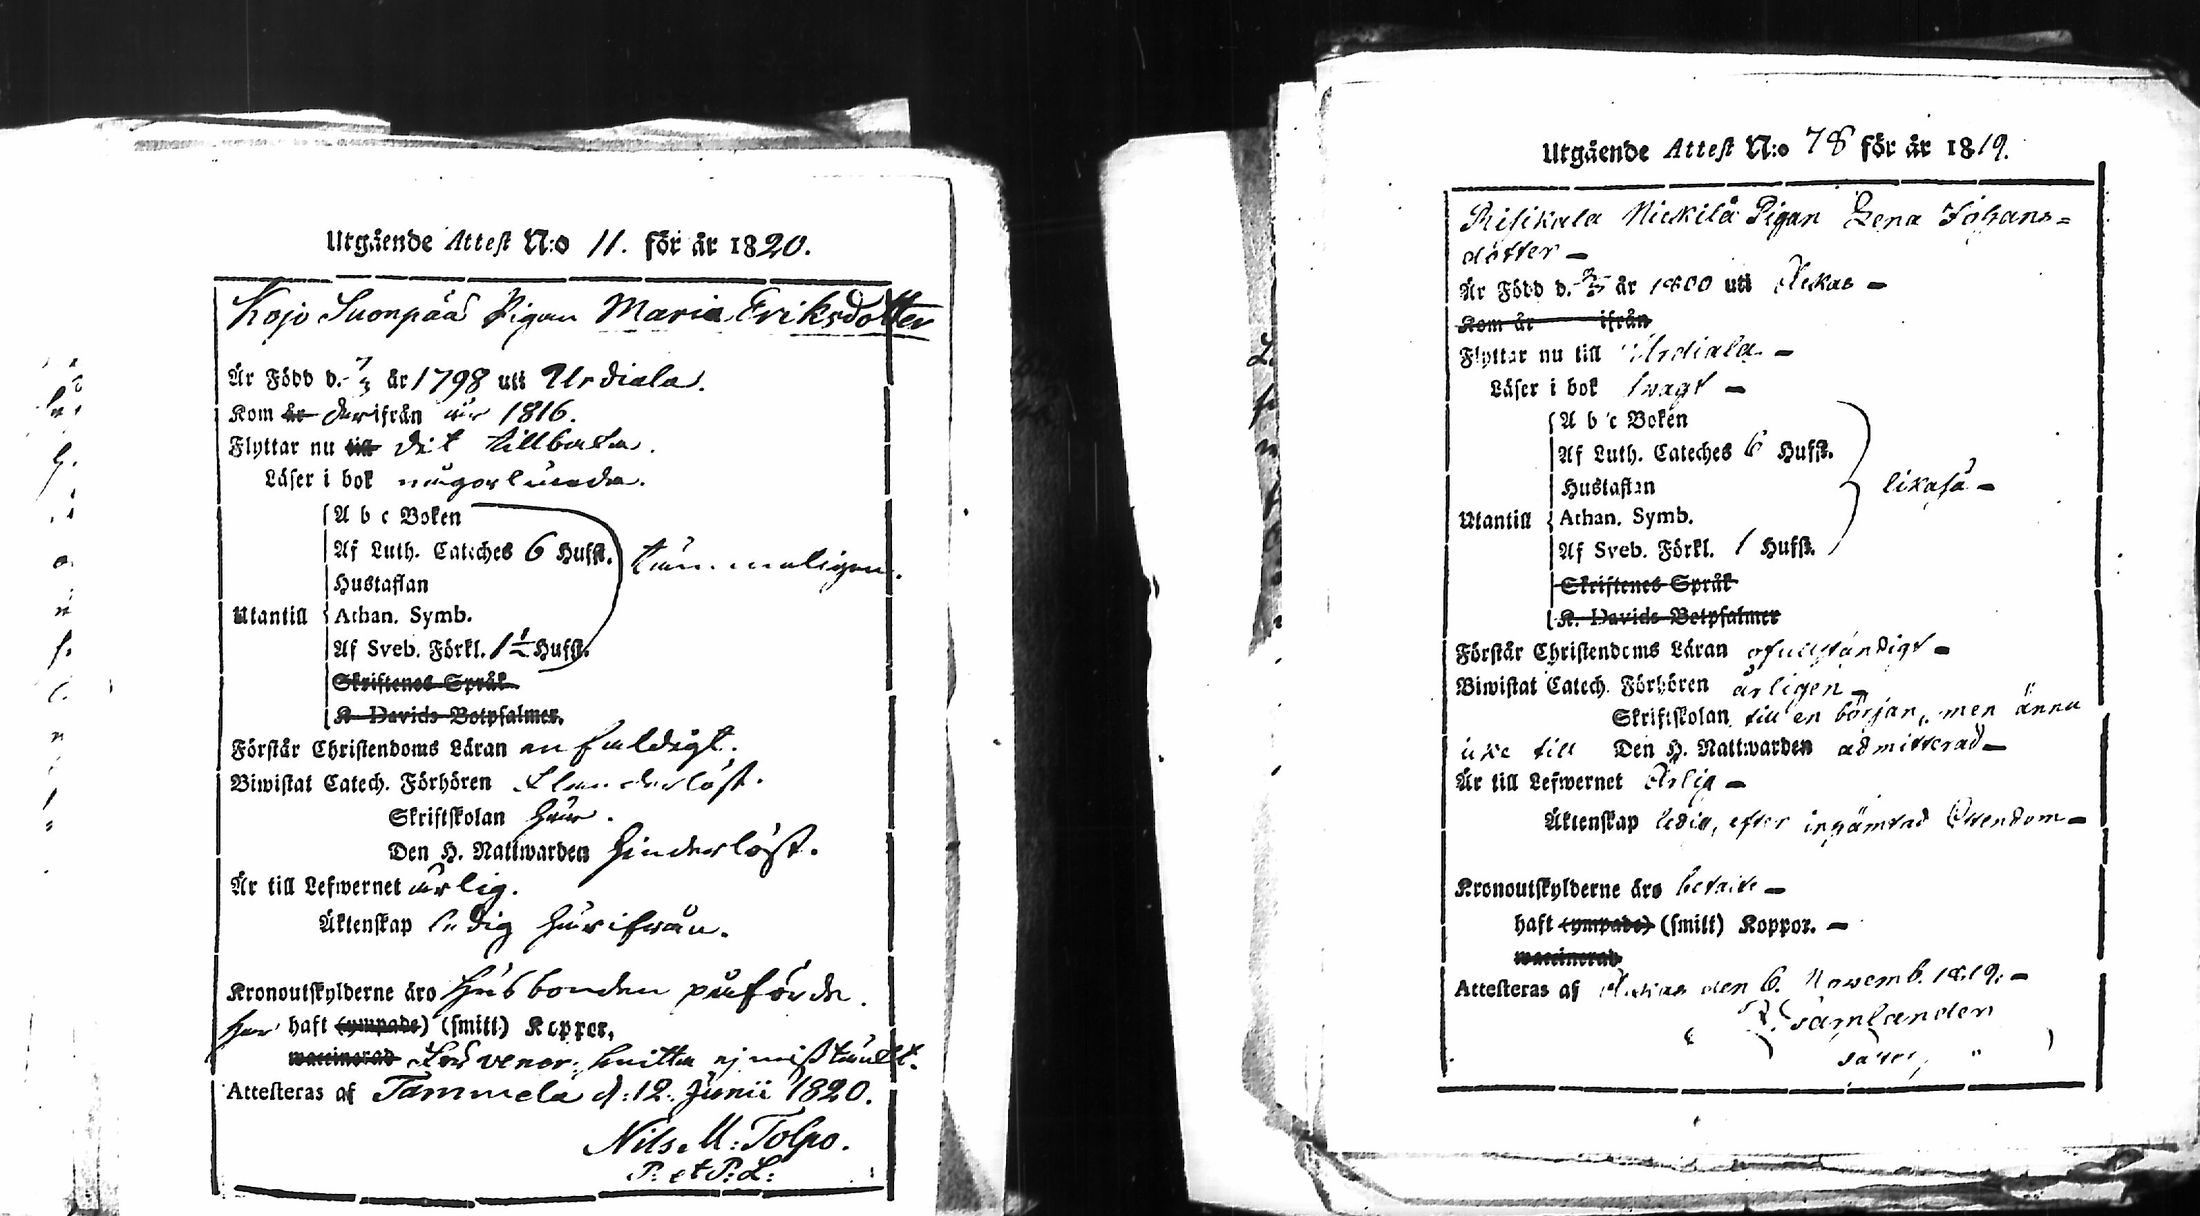 Utgående Attest N:o 11. för år 1820.
Kojo Suonpää Pigan Maria Eriksdotter
Är Född d. 7/3 år 1798 uti Urdiala.
Kom år derifrån år 1816.
Flyttar nu till dit tillbaka.
Läser i bok någorlunda.
A b c Boken
Af Luth. Cateches 6 Hufst. tämmeligen.
Hustaflan
Utantill Athan. Symb.
Af Sveb. Förkl. 1 1/2 Hufst.
Skriftenes Språk
K. Davids Botpsalmer.
Förstår Christendoms Läran enfaldigt.
Biwistat Catech. Förhören klanderlöst.
Skriftskolan här.
Den H. Nattwarden hinderlöst.
Är till Lefwernet ärlig.
Äktenskap ledig härifrån.
Kronoutskylderne äro husbonden påförde.
har haft (ympade) (smitt) Koppor,
waccinerad vener. smitta ej misstänkt.
Attesteras af Tammela d. 12. Junii 1820.
Nils M: Tolpo.
P: et P: L:
Utgående Attest N:o 78 för år 1819.
Risikala Nickilä Pigan Lena Johans=
dotter –
Är Född d. år 1800 uti Akkas –
Kom år ifrån
Flyttar nu till Urdiala –
Läser i bok swagt –
A b c Boken
Af Luth. Cateches 6 Hufst.
Hustaflan likaså –
Utantill Athan. Symb.
Af Sveb. Förkl. 1 Hufst.
Skriftenes Språk
K. Davids Botpsalmer
Förstår Christendoms Läran ofullständigt –
Biwistat Catech. Förhören årligen –
Skriftskolan till en början, men ännu
icke till Den H. Nattwarden admitterad –
Är till Lefwernet Ärlig –
Äktenskap ledig, efter inhämtad
Kronoutskylderne äro betalte –
haft (ympade) (smitt) Koppor. –
waccinerad
Attesteras af Akkas den 6. Novemb. 1819. –